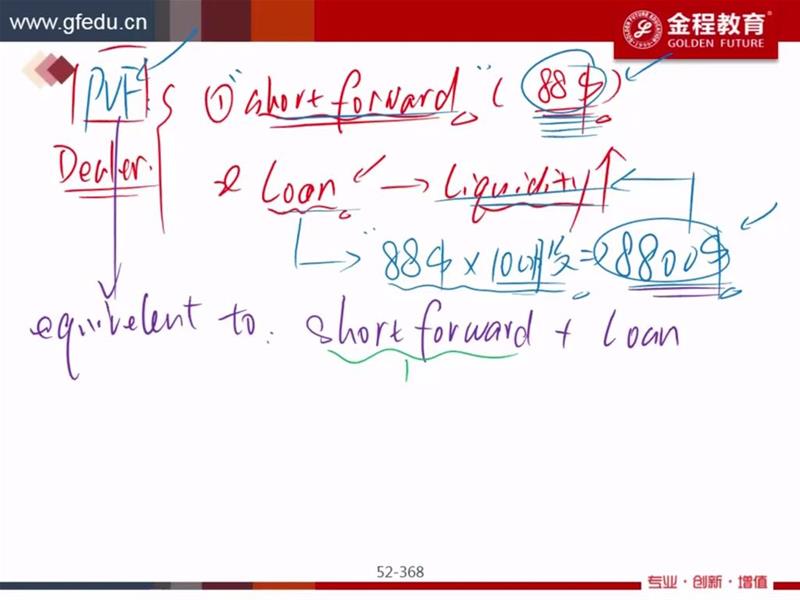 www.gfedu.cn
金程教育®
GOLDEN FUTURE
PVF
① "short forward" ( 88$ )
Dealer.
② Loan → Liquidity ↑
88$ × 100股 = 8800$
equivelent to: short forward + loan
52-368
专业·创新·增值